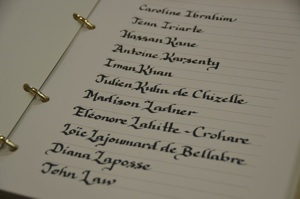 Caroline Ibrahim
Tena Iriarte
Hassan Kane
Antoine Karsenty
Iman Khan
Julien Kuhn de Chizelle
Madison Ladner
Eléonore Lahitte-Crohare
Loïc Lajoumard de Bellabre
Diana Laposse
John Law